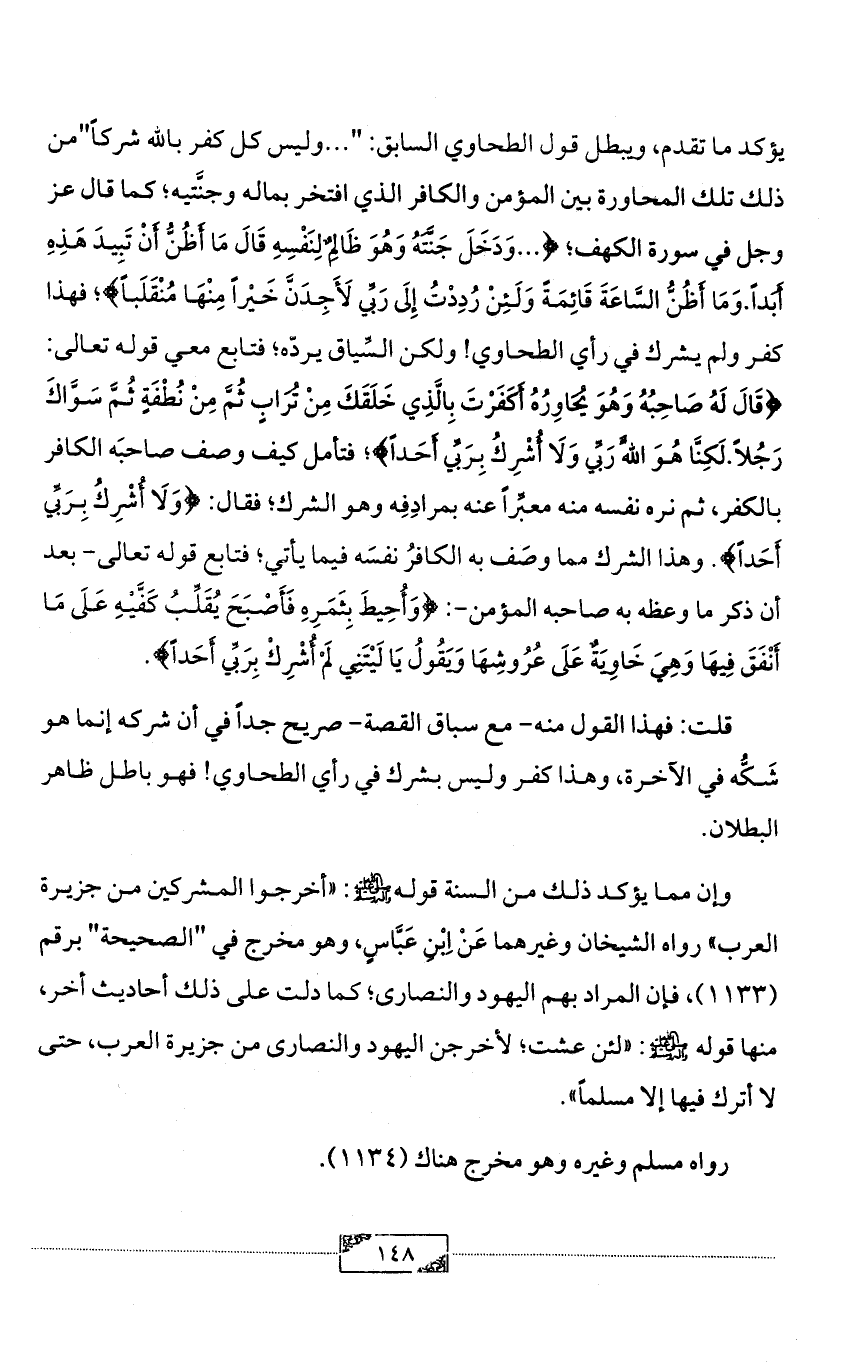 يؤكد ما تقدم، ويبطل قول الطحاوي السابق: "...وليس كل كفر بالله شركاً"من
ذلك تلك المحاورة بين المؤمن والكافر الذي افتخر بماله وجنَّتيه؛ كما قال عز
وجل في سورة الكهف؛ ﴿...وَدَخَلَ جَنَّتَهُ وَهُوَ ظَالِمٌ لِنَفْسِهِ قَالَ مَا أَظُنُّ أَنْ تَبِيدَ هَذِهِ
أَبَداً.وَمَا أَظُنُّ السَّاعَةَ قَائِمَةً وَلَئِنْ رُدِدْتُ إِلَى رَبِّي لَأَجِدَنَّ خَيْراً مِنْهَا مُنْقَلَباً﴾؛ فهذا
كفر ولم يشرك في رأي الطحاوي! ولكن السِّياق يردّه؛ فتابع معي قوله تعالى:
﴿قَالَ لَهُ صَاحِبُهُ وَهُوَ يُحَاوِرُهُ أَكَفَرْتَ بِالَّذِي خَلَقَكَ مِنْ تُرَابٍ ثُمَّ مِنْ نُطْفَةٍ ثُمَّ سَوَّاكَ
رَجُلاً.لَكِنَّا هُوَ اللَّهُ رَبِّي وَلَا أُشْرِكُ بِرَبِّي أَحَداً﴾؛ فتأمل كيف وصف صاحبَه الكافر
بالكفر، ثم نره نفسه منه معبِّراً عنه بمرادِفِه وهو الشرك؛ فقال: ﴿وَلَا أُشْرِكُ بِرَبِّي
أَحَداً﴾. وهذا الشرك مما وصَف به الكافرُ نفسَه فيما يأتي؛ فتابع قوله تعالى- بعد
أن ذكر ما وعظه به صاحبه المؤمن-: ﴿وَأُحِيطَ بِثَمَرِهِ فَأَصْبَحَ يُقَلِّبُ كَفَّيْهِ عَلَى مَا
أَنْفَقَ فِيهَا وَهِيَ خَاوِيَةٌ عَلَى عُرُوشِهَا وَيَقُولُ يَا لَيْتَنِي لَمْ أُشْرِكْ بِرَبِّي أَحَداً﴾.
قلت: فهذا القول منه- مع سباق القصة- صريح جداً في أن شركه إنما هو
شَكُّه في الآخرة، وهذا كفر وليس بشرك في رأي الطحاوي! فهو باطل ظاهر
البطلان.
وإن مما يؤكد ذلك من السنة قوله ﷺ: «أخرجوا المشركين من جزيرة
العرب» رواه الشيخان وغيرهما عَنْ اِبْنِ عَبَّاسٍ، وهو مخرج في "الصحيحة" برقم
(١١٣٣)، فإن المراد بهم اليهود والنصارى؛ كما دلت على ذلك أحاديث أخر،
منها قوله ﷺ: «لئن عشت؛ لأخرجن اليهود والنصارى من جزيرة العرب، حتى
لا أترك فيها إلا مسلماً».
رواه مسلم وغيره وهو مخرج هناك (١١٣٤).
١٤٨